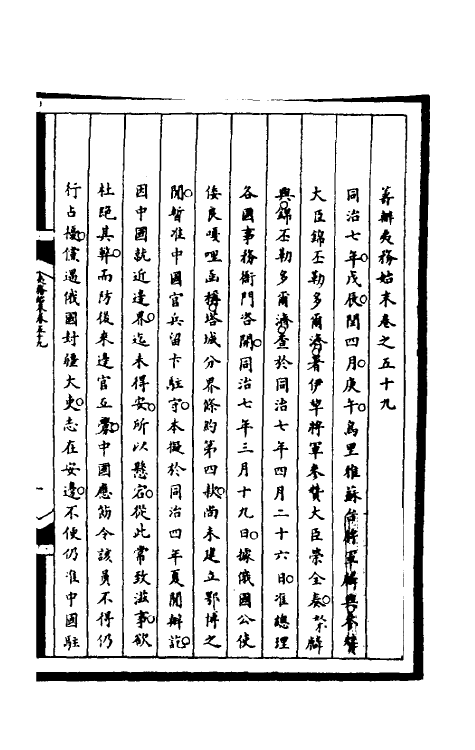 籌辦夷務始末卷之五十九
同治七年戊辰閏四月庚午烏里雅蘇台將軍麟興參贊
大臣錦丕勒多爾濟署伊犂將軍參贊大臣榮全奏棼麟
興錦丕勒多爾濟查於同治七年四月二十六日准總理
各國事務衙門咨開同治七年三月十九日據俄國公使
倭良嘎哩函稱塔城分界條約第四款尚未建立鄂博之
間暫准中國官兵留卡駐守本擬於同治四年夏間辦訖
因中國就近邊界迄未得安所以懸宕從此常致滋事欲
杜絕其弊而防後來邊官互釁中國應飭令該員不得仍
行占據儻遇俄國封疆大吏志在安邊不便仍准中國駐
夷務始末卷五十九